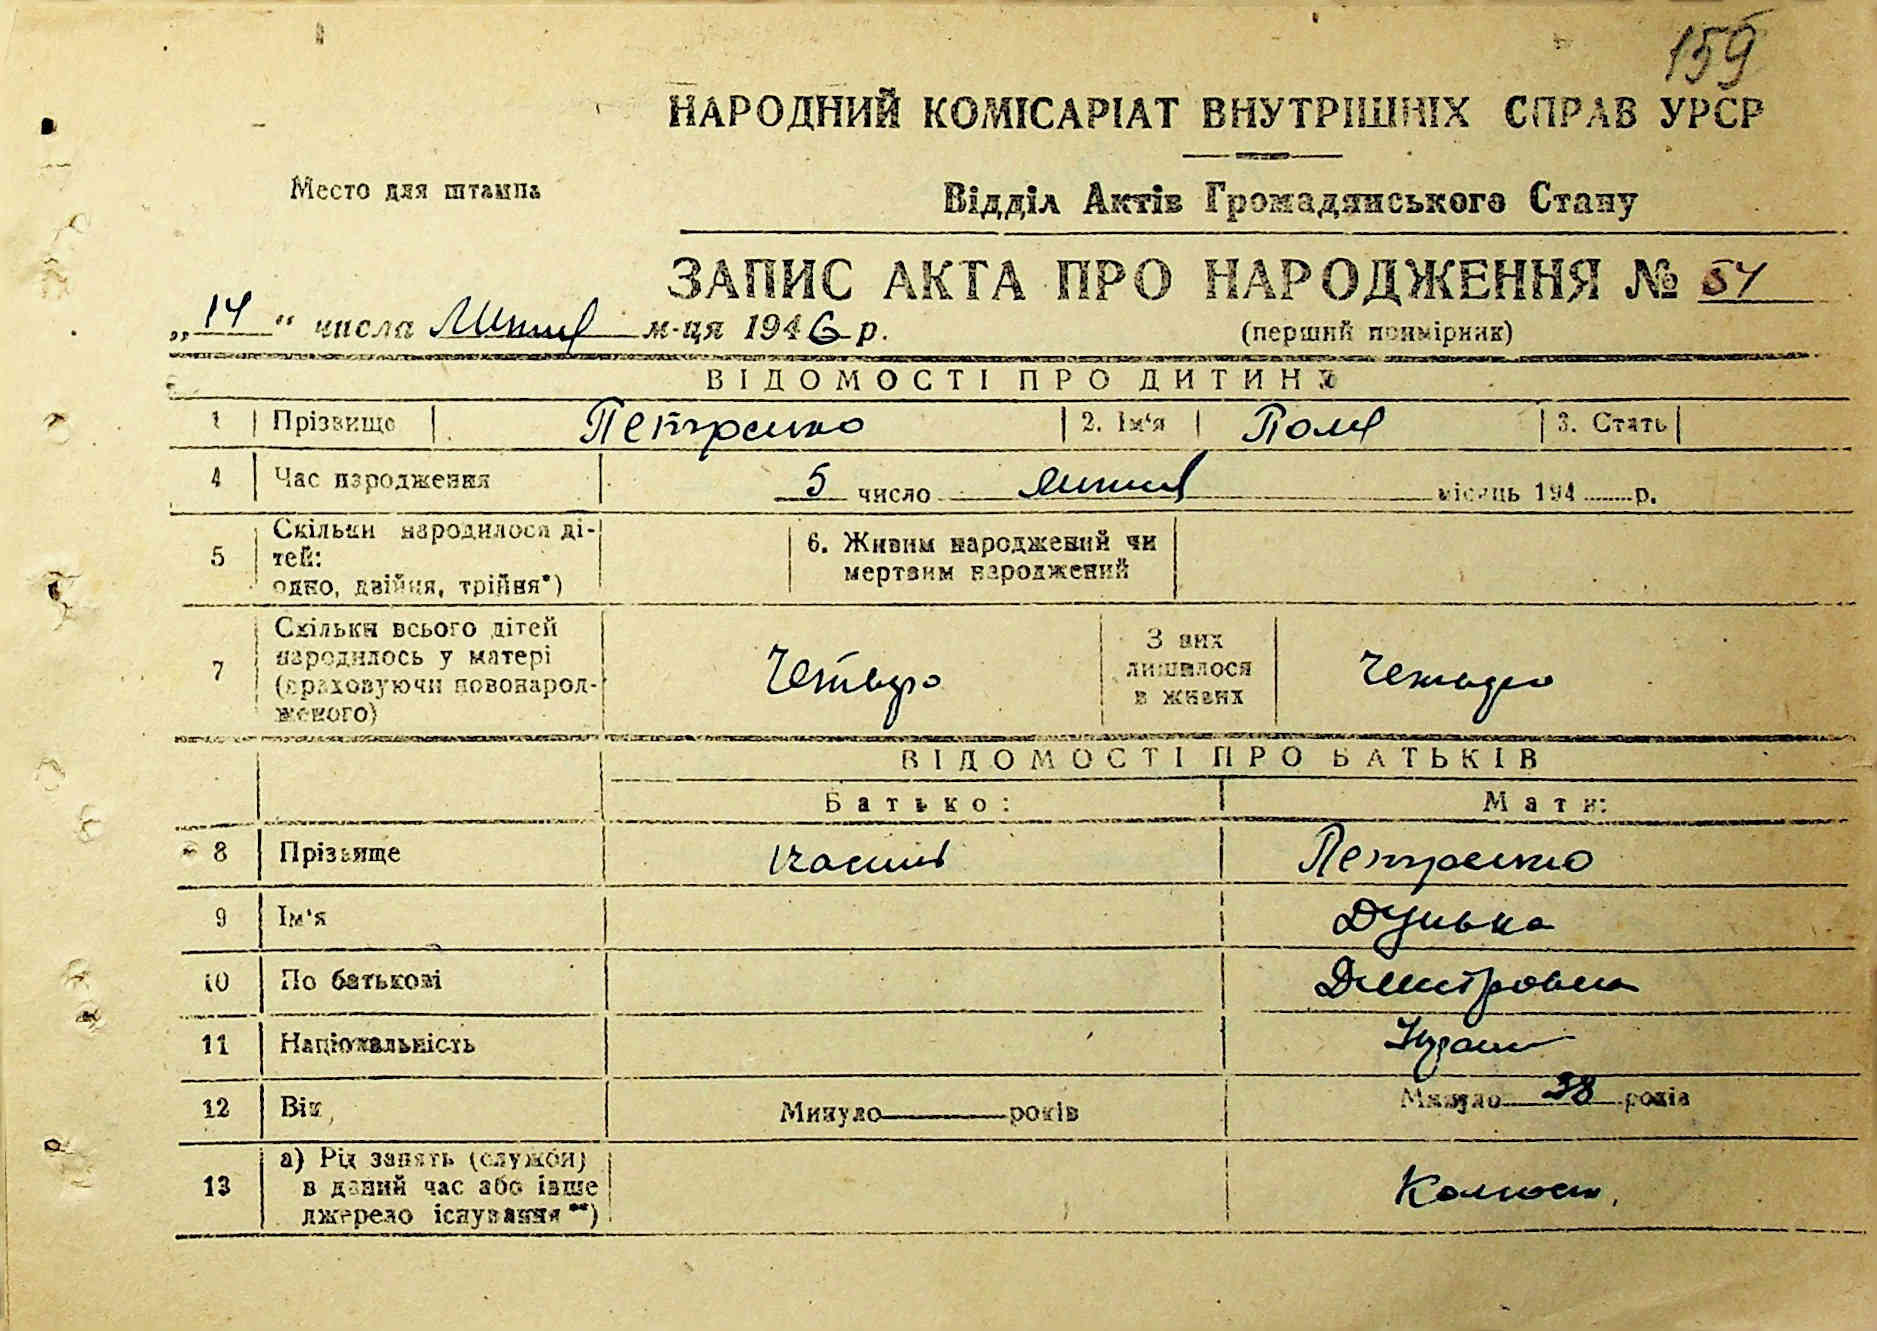 159
НАРОДНИЙ КОМІСАРІАТ ВНУТРІШНІХ СПРАВ УРСР
Место для штампа
Відділ Актів Громадянського Стану
ЗАПИС АКТА ПРО НАРОДЖЕННЯ № 54
„14“ числа Липня м-ця 1946 р.
(перший примірник)
ВІДОМОСТІ ПРО ДИТИНУ
1 Прізвище Петренко 2. Ім'я Поля 3. Стать
4 Час народження 5 число липня місяць 194 р.
5 Скільки народилося ді-
тей:
одно, двійня, трійня*)
6. Живим народжений чи
мертвим народжений
7 Скільки всього дітей
народилось у матері
(враховуючи новонарод-
женого)
Четверо
З них
лишилося
в живих
Четверо
ВІДОМОСТІ ПРО БАТЬКІВ
Батько: Мати:
8 Прізвище Петренко
9 Ім'я Дунька
10 По батькові Дмитровна
11 Національність
12 Вік Минуло років Минуло 38 років
13 а) Рід занять (служби)
в даний час або інше
джерело існування**)